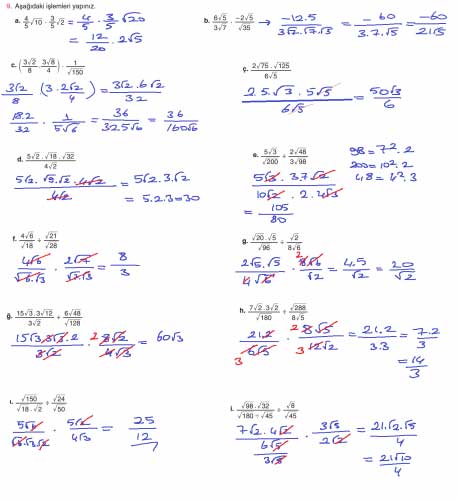 9. Aşağıdaki işlemleri yapınız.
a. 4/5 √10 · 3/5 √2 = 4/5 · 3/5 √20
= 12/20 · 2√5
b. 6√5/3√7 · -2√5/√35 → -12.5/3√7.√7√3 = -60/3.7.√5 = -60/21√5
c. (3√2/8 · 3√8/4) · 1/√150
3√2/8 (3·2√2/4) = 3√2·6√2/32
18.2/32 · 1/5√6 = 36/32.5√6 = 36/160√6
ç. 2√75 . √125/6√5
2.5√3 . 5√5/6√5 = 50√3/6
d. 5√2 . √18 . √32/4√2
5√2. √5.√2 . 4√2/4√2 = 5√2.3.√2
= 5.2.3=30
e. 5√3/√200 ÷ 2√48/3√98
98 = 7².2
200=10².2
48 = 4².3
5√3 . 3.7√2/10√2 . 2.4√3
= 105/80
f. 4√6/√18 ÷ √21/√28
4√6/√6.√3 · 2√7/√7.√3 = 8/3
g. √20 . √5/√96 ÷ √2/8√6
2√5.√5/4√6 · 2 8√6/√2 = 4.5/√2 = 20/√2
ğ. 15√3 . 3√12/3√2 ÷ 6√48/√128
15√3.3√3.2/3√2 · 2 8√2/4√3 = 60√3
h. 7√2 . 3√2/√180 ÷ √288/8√5
21.2/6√5 3 · 2 8√5/12√2 3 = 21.2/3.3 = 7.2/3
= 14/3
ı. √150/√18 . √2 ÷ √24/√50
5√6/√3.√3√2 · 5√2/4√3 = 25/12
i. √98 . √32/√180 ÷ √45 ÷ √8/√45
7√2 . 4√2/6√5/3√5 · 3√5/2√2 = 21.√2.√5/4
= 21√10/4